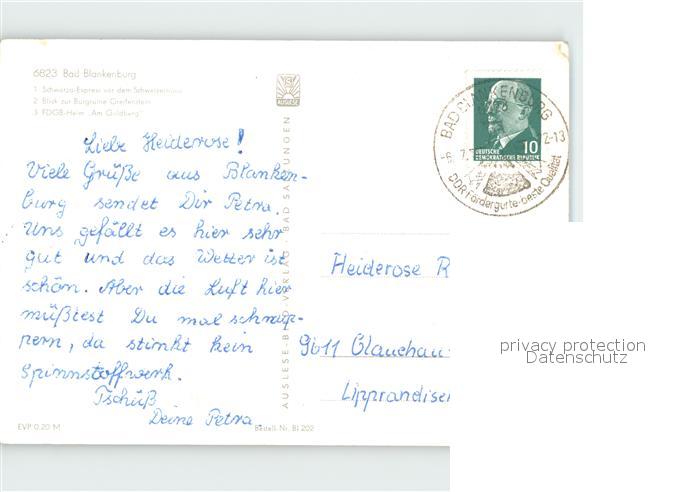 6823 Bad Blankenburg
1 Schwarza-Express vor dem Schweizerhaus
2 Blick zur Burgruine Greifenstein
3 FDGB-Heim „Am Goldberg"
Liebe Heiderose!
Viele Grüße aus Blanken-
burg sendet Dir Petra.
Uns gefällt es hier sehr
gut und das Wetter ist
schön. Aber die Luft hier
müßtest Du mal schnup-
pern, da stinkt kein
Spinnstoffwerk.
Tschüß
Deine Petra.
EVP 0,20 M
Bestell-Nr. BI 202
AUSLESE-B VERLAG · BAD SALZUNGEN
BAD BLANKENBURG
DDR Fördergurte-beste Qualität
10
DEUTSCHE
DEMOKRATISCHE REPUBLIK
Heiderose R
9611 Glauchau
Lipprandiser
privacy protection
Datenschutz